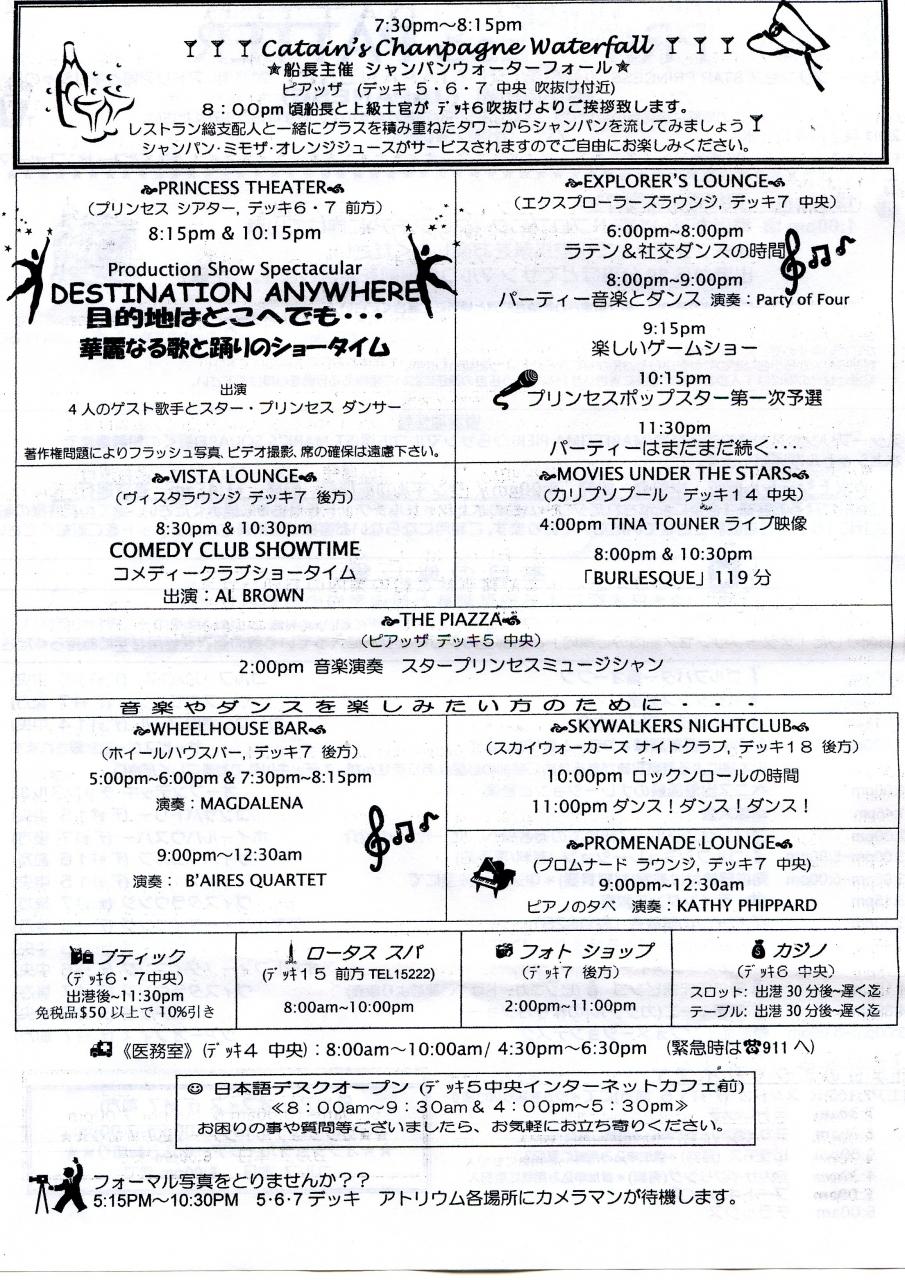 7:30pm～8:15pm
Catain's Chanpagne Waterfall
★船長主催 シャンパンウォーターフォール★
ピアッザ (デッキ 5・6・7 中央 吹抜け付近)
8：00pm 頃船長と上級士官が デッキ6吹抜けよりご挨拶致します。
レストラン総支配人と一緒にグラスを積み重ねたタワーからシャンパンを流してみましょう
シャンパン・ミモザ・オレンジジュースがサービスされますのでご自由にお楽しみください。
PRINCESS THEATER
(プリンセス シアター, デッキ6・7 前方)
8:15pm & 10:15pm
Production Show Spectacular
DESTINATION ANYWHERE
目的地はどこへでも・・・
華麗なる歌と踊りのショータイム
出演
4人のゲスト歌手とスター・プリンセス ダンサー
著作権問題によりフラッシュ写真、ビデオ撮影、席の確保は遠慮下さい。
EXPLORER'S LOUNGE
(エクスプローラーズラウンジ, デッキ7 中央)
6:00pm～8:00pm
ラテン＆社交ダンスの時間
8:00pm～9:00pm
パーティー音楽とダンス 演奏：Party of Four
9:15pm
楽しいゲームショー
10:15pm
プリンセスポップスター第一次予選
11:30pm
パーティーはまだまだ続く・・・・
VISTA LOUNGE
(ヴィスタラウンジ デッキ7 後方)
8:30pm & 10:30pm
COMEDY CLUB SHOWTIME
コメディークラブショータイム
出演：AL BROWN
MOVIES UNDER THE STARS
(カリプソプール デッキ14 中央)
4:00pm TINA TOUNER ライブ映像
8:00pm & 10:30pm
「BURLESQUE」119分
THE PIAZZA
(ピアッザ デッキ5 中央)
2:00pm 音楽演奏 スタープリンセスミュージシャン
音楽やダンスを楽しみたい方のために・・・・
WHEELHOUSE BAR
(ホイールハウスバー, デッキ7 後方)
5:00pm～6:00pm & 7:30pm～8:15pm
演奏：MAGDALENA
9:00pm～12:30am
演奏： B'AIRES QUARTET
SKYWALKERS NIGHTCLUB
(スカイウォーカーズ ナイトクラブ, デッキ18 後方)
10:00pm ロックンロールの時間
11:00pm ダンス！ダンス！ダンス！
PROMENADE LOUNGE
(プロムナード ラウンジ, デッキ7 中央)
9:00pm～12:30am
ピアノの夕べ 演奏：KATHY PHIPPARD
ブティック
(デッキ6・7中央)
出港後～11:30pm
免税品$50以上で10%引き
ロータス スパ
(デッキ15 前方 TEL15222)
8:00am～10:00pm
フォト ショップ
(デッキ7 後方)
2:00pm～11:00pm
カジノ
(デッキ6 中央)
スロット：出港30分後~遅く迄
テーブル：出港30分後~遅く迄
《医務室》(デッキ4 中央)：8:00am～10:00am/ 4:30pm～6:30pm (緊急時は☎911へ)
☺ 日本語デスクオープン (デッキ5中央インターネットカフェ前)
≪8：00am～9：30am & 4：00pm～5：30pm≫
お困りの事や質問等ございましたら、お気軽にお立ち寄りください。
フォーマル写真をとりませんか？？
5:15PM～10:30PM 5・6・7デッキ アトリウム各場所にカメラマンが待機します。